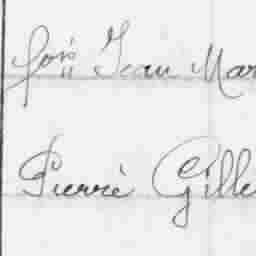 Jean Mar
Pierre Gille